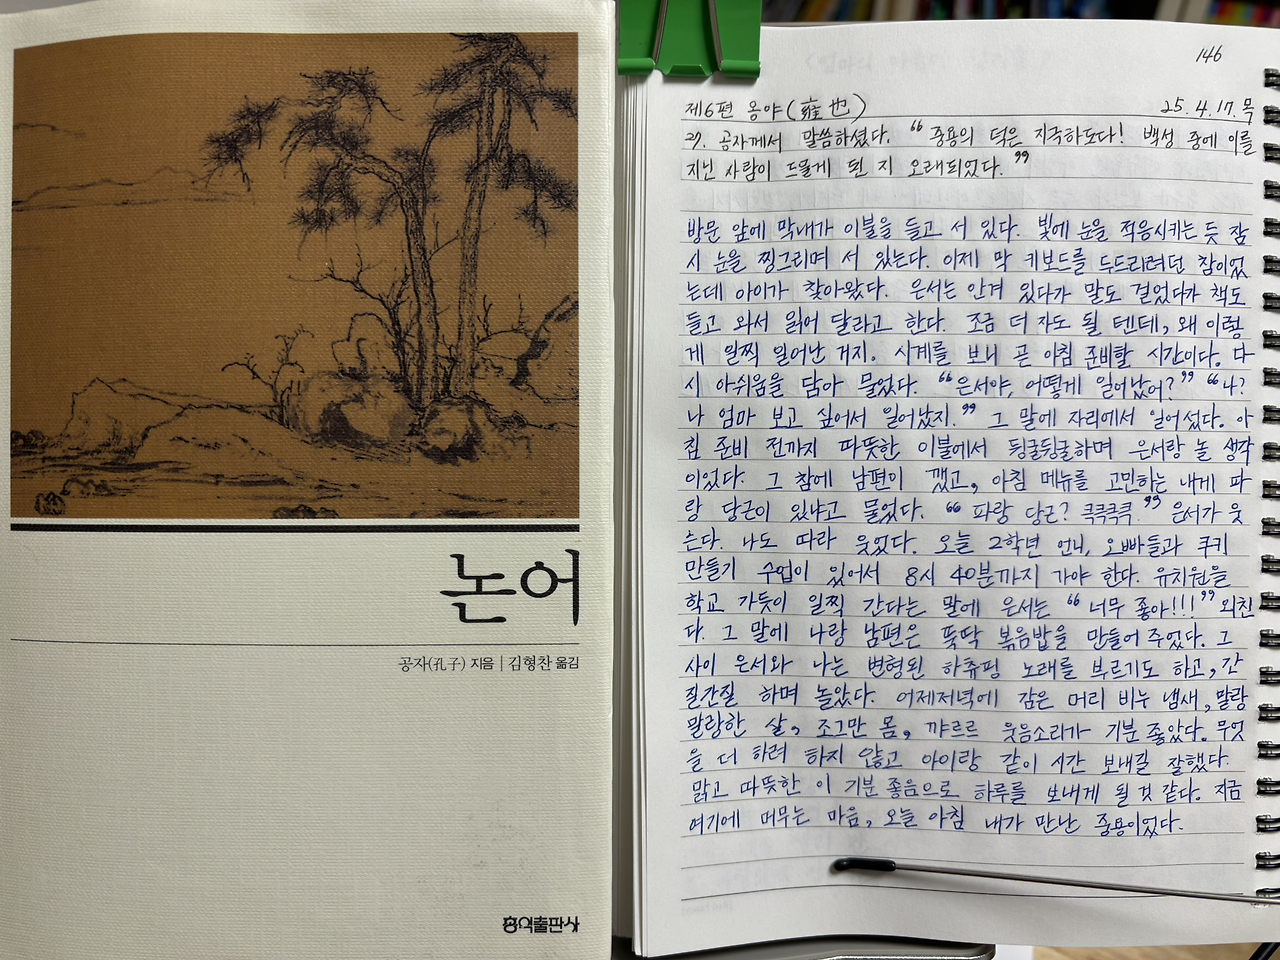 논어
공자(孔子) 지음 | 김형찬 옮김
홍익출판사
146
제6편 옹야(雍也) 25.4.17.목
27. 공자께서 말씀하셨다. "중용의 덕은 지극하도다! 백성 중에 이를
지닌 사람이 드물게 된 지 오래되었다."
방문 앞에 막내가 이불을 들고 서 있다. 빛에 눈을 적응시키는 듯 잠
시 눈을 찡그리며 서 있는다. 이제 막 키보드를 두드리려던 참이었
는데 아이가 찾아왔다. 은서는 안겨 있다가 말도 걸었다가 책도
들고 와서 읽어 달라고 한다. 조금 더 자도 될 텐데, 왜 이렇
게 일찍 일어난 거지. 시계를 보니 곧 아침 준비할 시간이다. 다
시 아쉬움을 담아 물었다. "은서야, 어떻게 일어났어?" "나?
나 엄마 보고 싶어서 일어났지." 그 말에 자리에서 일어섰다. 아
침 준비 전까지 따뜻한 이불에서 뒹굴뒹굴하며 은서랑 놀 생각
이었다. 그 참에 남편이 깼고, 아침 메뉴를 고민하는 내게 파
랑 당근이 있냐고 물었다. "파랑 당근? 큭큭큭큭." 은서가 웃
는다. 나도 따라 웃었다. 오늘 2학년 언니, 오빠들과 쿠키
만들기 수업이 있어서 8시 40분까지 가야 한다. 유치원을
학교 가듯이 일찍 간다는 말에 은서는 "너무 좋아!!!" 외친
다. 그 말에 나랑 남편은 뚝딱 볶음밥을 만들어 주었다. 그
사이 은서와 나는 변형된 하츄핑 노래를 부르기도 하고, 간
질간질 하며 놀았다. 어제저녁에 감은 머리 비누 냄새, 말랑
말랑한 살, 조그만 몸, 꺄르르 웃음소리가 기분 좋았다. 무엇
을 더 하려 하지 않고 아이랑 같이 시간 보내길 잘했다.
맑고 따뜻한 이 기분 좋음으로 하루를 보내게 될 것 같다. 지금
여기에 머무는 마음, 오늘 아침 내가 만난 중용이었다.